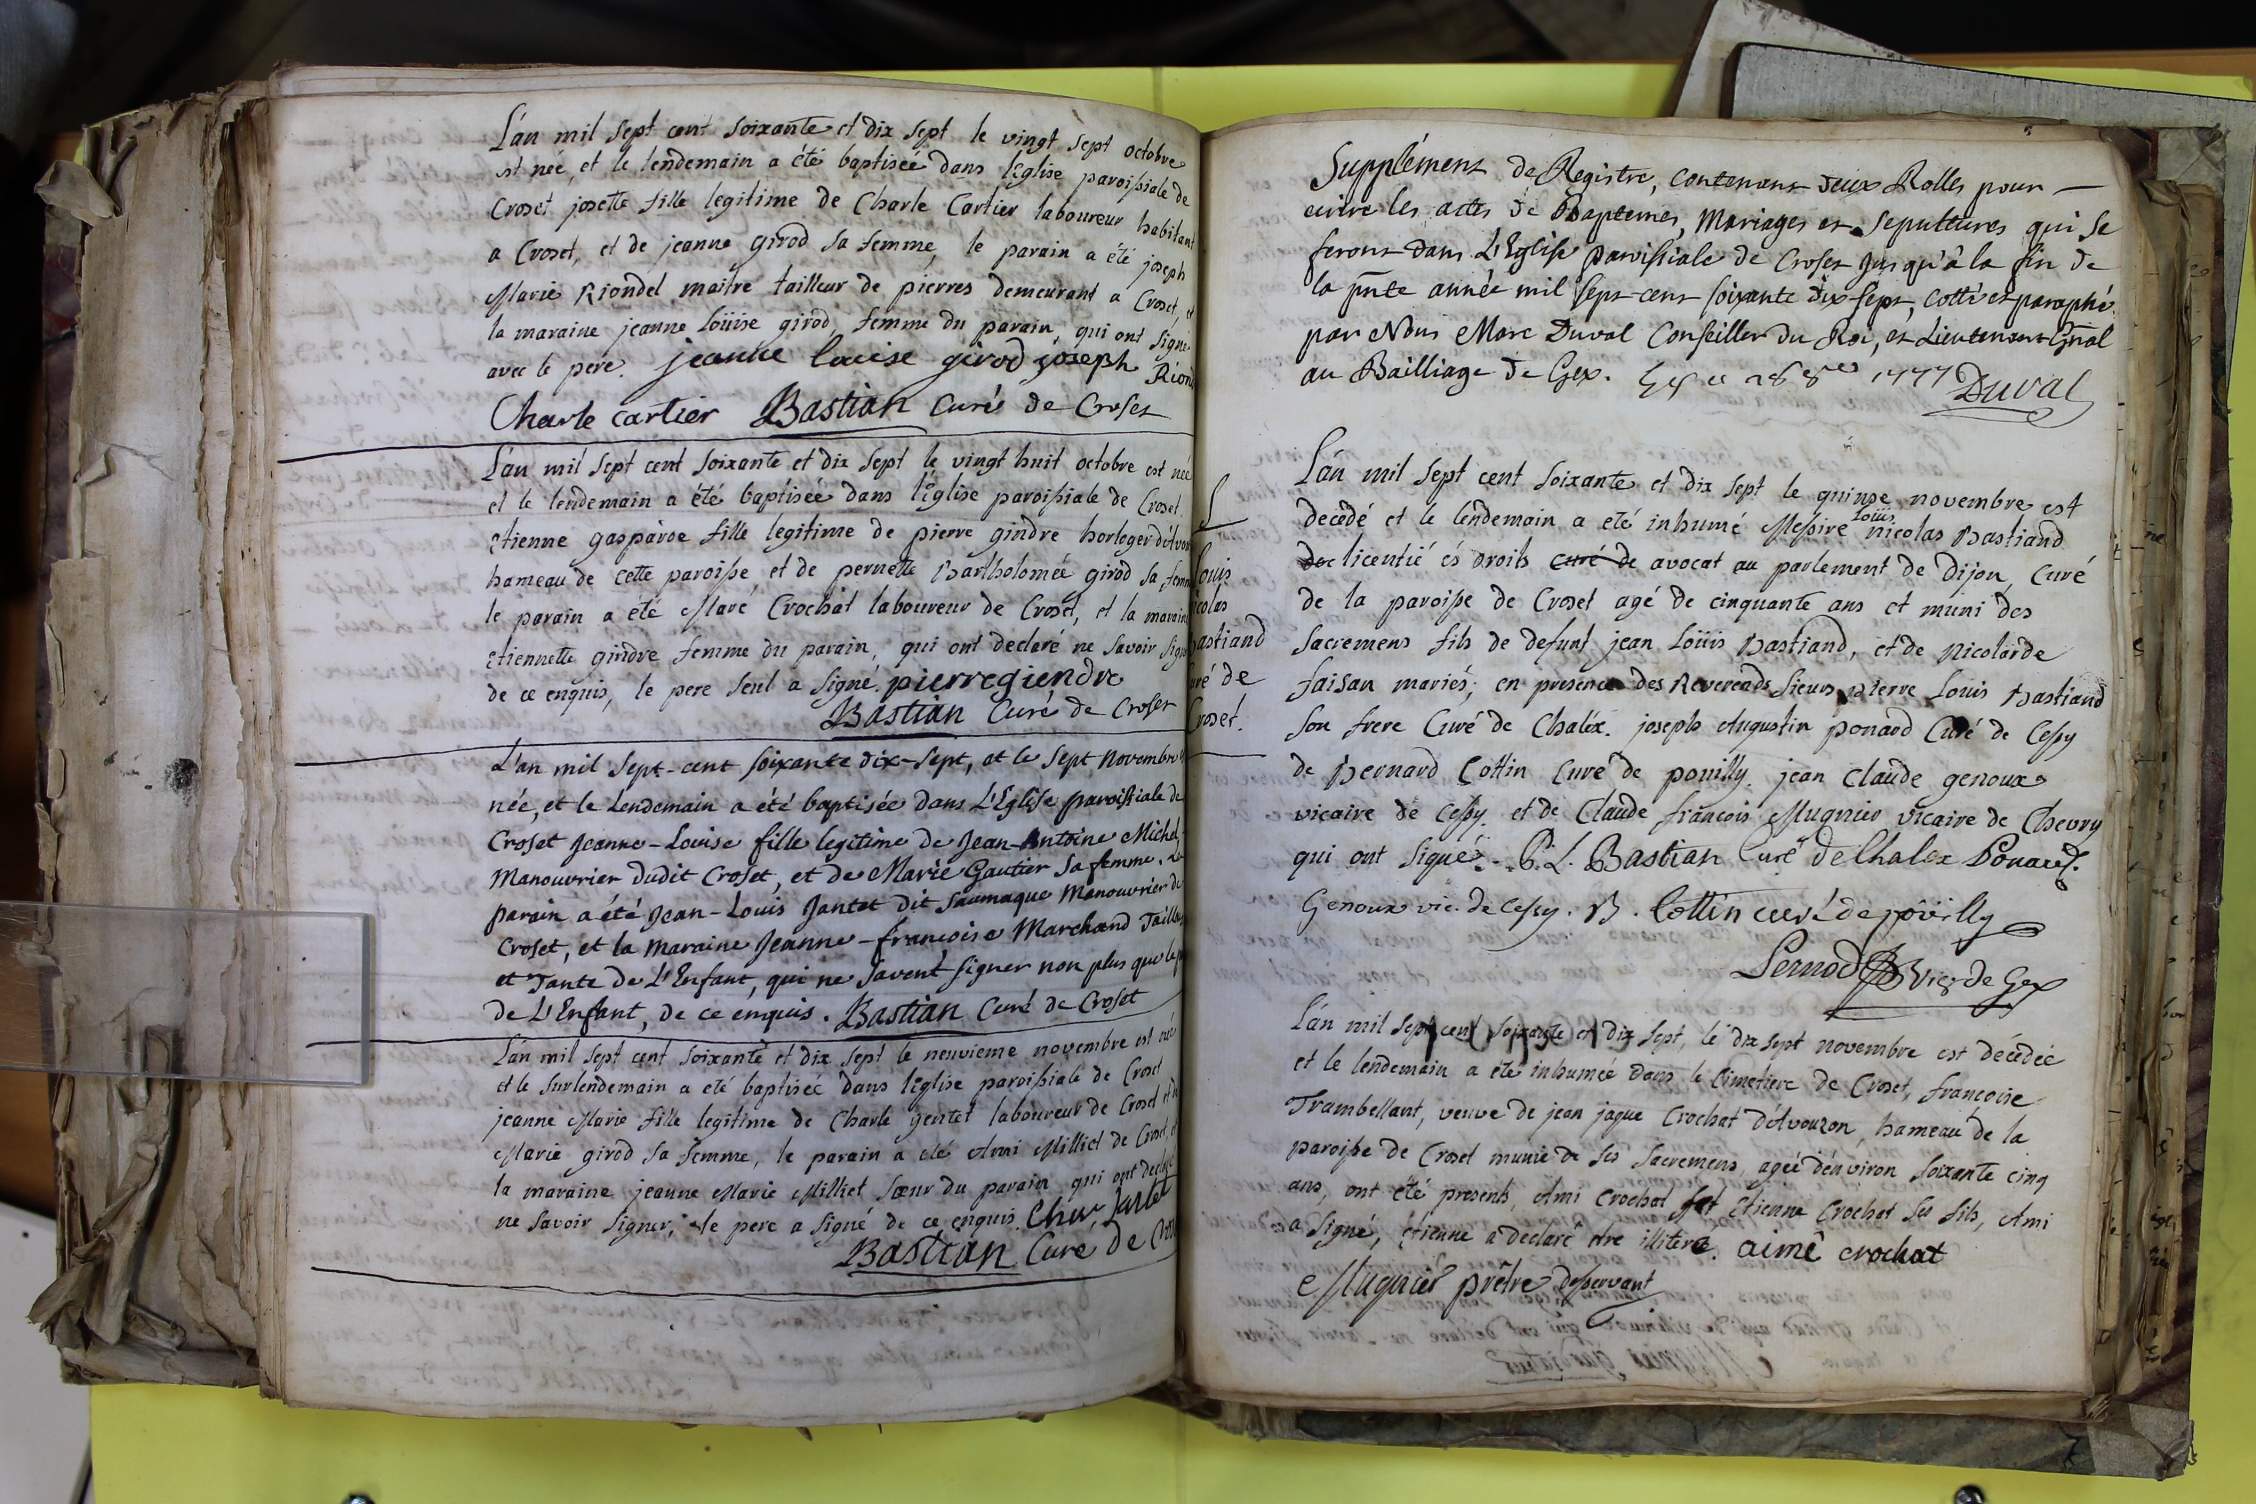 L'an mil sept cent soixante et dix sept le vingt sept octobre
est née, et le lendemain a été baptisée dans l'Eglise paroissiale de
Croset josette fille legitime de Charle Cartier laboureur habitant
a Croset, et de jeanne girod sa femme, le parain a été joseph
Marie Riondel maitre tailleur de pierres demeurant a Croset, et
la maraine jeanne Loüise girod, femme du parain, qui ont signé
avec le pere. jeanne louise girod joseph Riond
Charle cartier Bastian Curé de Croset
L'an mil sept cent soixante et dix sept le vingt huit octobre est née
et le lendemain a été baptisée dans l'Eglise paroissiale de Croset
Etienne gasparde fille legitime de pierre gindre horloger d'Avouzon
hameau de cette paroisse et de pernette Bartholomée girod sa femme
le parain a été Maré Crochat laboureur de Croset, et la maraine
Etiennette gindre femme du parain, qui ont declaré ne savoir signer
de ce enquis, le pere seul a signé. pierre giendre
Bastian Curé de Croset
L'an mil sept-cent soixante dix-sept, et le sept novembre
née, et le Lendemain a été baptisée dans L'Eglise paroissiale de
Croset Jeanne-Louise fille legitime de Jean-Antoine Michel
Manouvrier dudit Croset, et de Marie Gautier sa femme. Le
parain a été Jean-Louis Jantet dit saumaque Manouvrier de
Croset, et la maraine Jeanne-françoise Marchand Tailleuse
et Tante de L'Enfant, qui ne savent signer non plus que le pere
de L'Enfant, de ce enquis. Bastian Curé de Croset
L'an mil sept cent soixante et dix sept le neuvieme novembre est née
et le surlendemain a eté baptisée dans l'Eglise paroissiale de Croset
jeanne Marie fille legitime de Charle gentet laboureur de Croset et de
Marie girod sa femme, le parain a eté Ami Milliet de Croset, et
la maraine jeanne Marie Milliet sœur du parain qui ont declaré
ne savoir signer, le pere a signé de ce enquis. Char Jantet
Bastian Curé de Croset
Supplément de Registre, contenant deux Rolles pour
ecrire les actes de Baptemes, Mariages et sepultures qui se
feront dans L'Eglise paroissiale de Croset jusqu'à la fin de
la pnte année mil sept-cent soixante dix-sept, cotté et paraphé
par Nous Marc Duval Conseiller du Roi, et Lieutenant Gnal
au Bailliage de Gex. 1777 Duval
Louis
nicolas
Bastiand
curé de
Croset.
L'an mil sept cent soixante et dix sept le quinze novembre est
decédé et le lendemain a eté inhumé Messire Loüis nicolas Bastiand
doc licentié és droits curé de avocat au parlement de Dijon, Curé
de la paroisse de Croset agé de cinquante ans et muni des
sacremens fils de defunt jean Loüis Bastiand, et de Nicolarde
faisan mariés; en presence des Reverends sieurs pierre Louis Bastiand
son frere Curé de Chaléx. joseph Augustin ponard Curé de Cessy
de Bernard Cottin Curé de pouilly. jean Claude genoux
vicaire de Cessy et de Claude françois Mugnier vicaire de Chevry
qui ont signés. P. L. Bastian Curé de Chalex Ponard.
Genoux vic. de Cessy. B. Cottin curé de poüilly
Pernod Vicr de Gex
L'an mil sept cent soixante et dix sept, le dix sept novembre est décédée
et le lendemain a eté inhumée dans le Cimetiere de Croset, françoise
Trambellant, veuve de jean jaque Crochat d'Avouzon, hameau de la
paroisse de Croset munie de ses sacremens, agée d'environ soixante cinq
ans, ont été presents, Ami Crochat et Etienne Crochat ses fils, Ami
a signé, Etienne a declaré etre illiteré. aimé crochat
Mugnier prêtre desservant